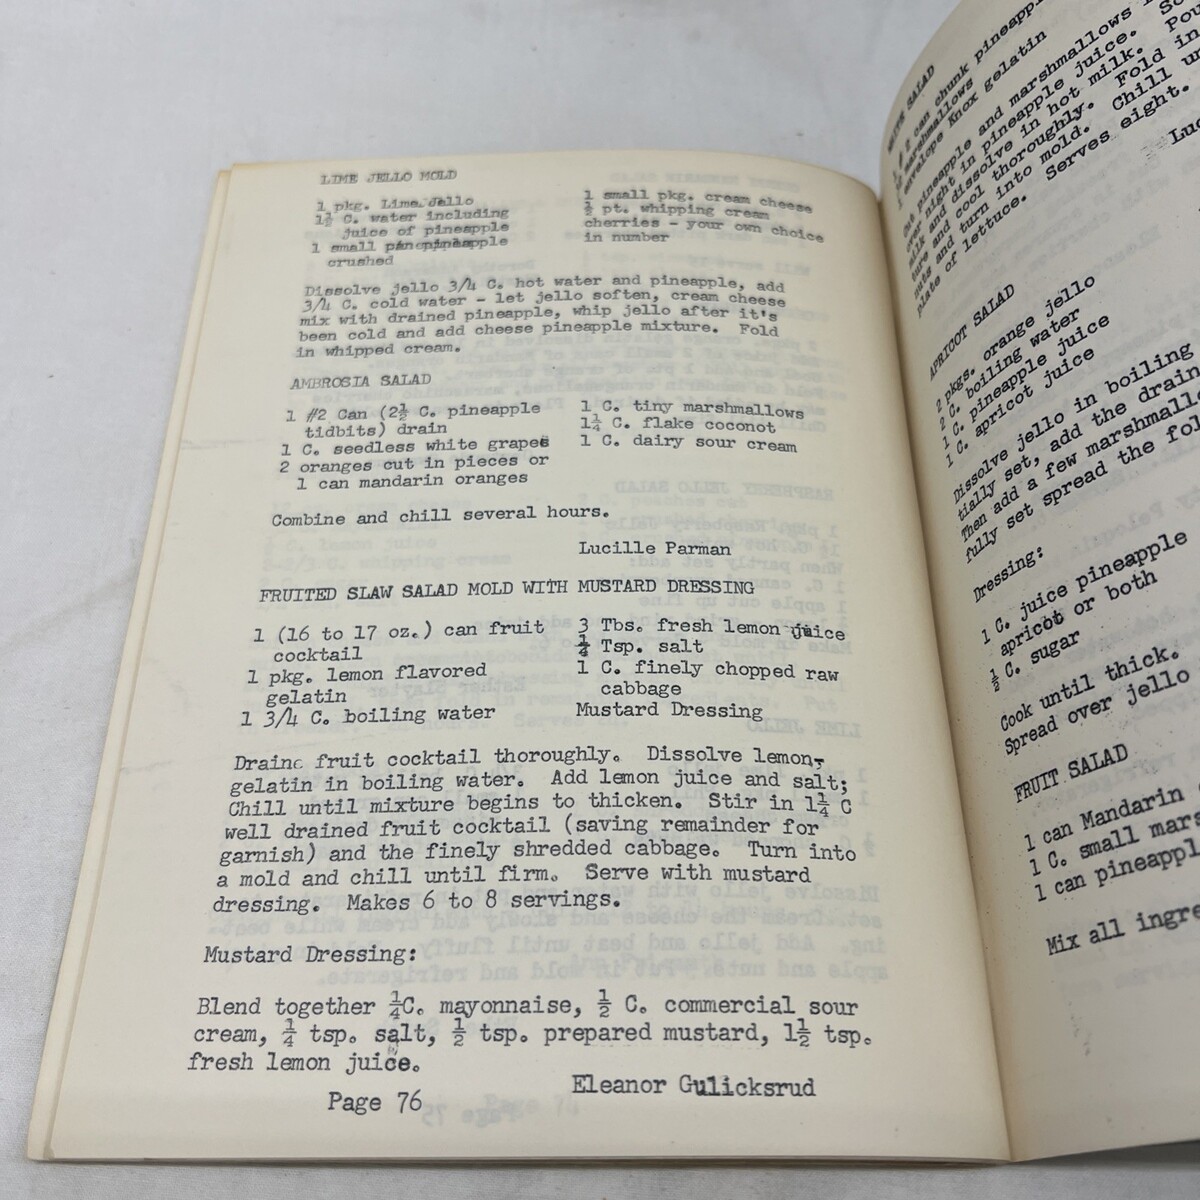 LIME JELLO MOLD
1 pkg. Lime Jello
1½ C. water including
juice of pineapple
1 small pineapple
crushed
1 small pkg. cream cheese
½ pt. whipping cream
cherries - your own choice
in number
Dissolve jello 3/4 C. hot water and pineapple, add
3/4 C. cold water - let jello soften, cream cheese
mix with drained pineapple, whip jello after it's
been cold and add cheese pineapple mixture. Fold
in whipped cream.
AMBROSIA SALAD
1 #2 Can (2½ C. pineapple
tidbits) drain
1 C. seedless white grapes
2 oranges cut in pieces or
1 can mandarin oranges
1 C. tiny marshmallows
1¼ C. flake coconot
1 C. dairy sour cream
Combine and chill several hours.
Lucille Parman
FRUITED SLAW SALAD MOLD WITH MUSTARD DRESSING
1 (16 to 17 oz.) can fruit
cocktail
1 pkg. lemon flavored
gelatin
1 3/4 C. boiling water
3 Tbs. fresh lemon juice
¼ Tsp. salt
1 C. finely chopped raw
cabbage
Mustard Dressing
Drain fruit cocktail thoroughly. Dissolve lemon,
gelatin in boiling water. Add lemon juice and salt;
Chill until mixture begins to thicken. Stir in 1¼ C
well drained fruit cocktail (saving remainder for
garnish) and the finely shredded cabbage. Turn into
a mold and chill until firm. Serve with mustard
dressing. Makes 6 to 8 servings.
Mustard Dressing:
Blend together ¼C. mayonnaise, ½ C. commercial sour
cream, ¼ tsp. salt, ½ tsp. prepared mustard, 1½ tsp.
fresh lemon juice.
Eleanor Gulicksrud
Page 76
WHITE SALAD
1 # 2 can chunk pineapple
marshmallows
envelope Knox gelatin
pineapple and marshmallows
over night in pineapple juice.
and dissolve in hot milk. Pou
milk and cool thoroughly. Fold in
ture and turn into mold. Chill un
nuts and
plate of lettuce. Serves eight.
Luc
APRICOT SALAD
2 pkgs. orange jello
2 C. boiling water
1 C. pineapple juice
1 C. apricot juice
Dissolve jello in boiling
tially set, add the drain
Then add a few marshmallo
fully set spread the fol
Dressing:
1 C. juice pineapple
apricot or both
½ C. sugar
Cook until thick.
Spread over jello
FRUIT SALAD
1 can Mandarin
1 C. small mars
1 can pineappl
Mix all ingre